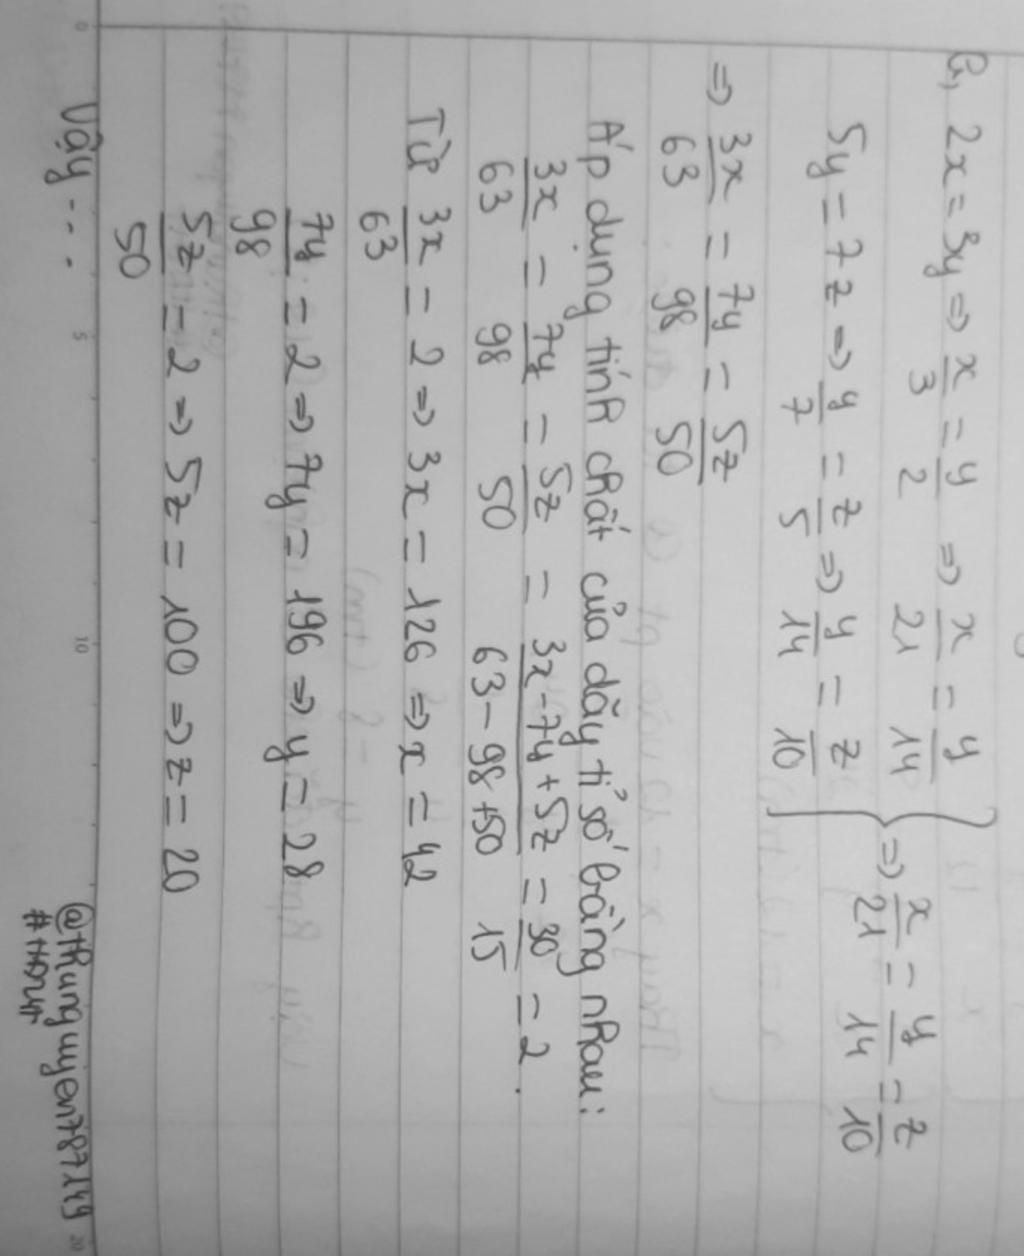 b, 2x = 3y => x/3 = y/2 => x/21 = y/14
5y = 7z => y/7 = z/5 => y/14 = z/10 } => x/21 = y/14 = z/10
=> 3x/63 = 7y/98 = 5z/50
Áp dụng tính chất của dãy tỉ số bằng nhau:
3x/63 = 7y/98 = 5z/50 = 3x-7y+5z/63-98+50 = 30/15 = 2.
Từ 3x/63 = 2 => 3x = 126 => x = 42
7y/98 = 2 => 7y = 196 => y = 28
5z/50 = 2 => 5z = 100 => z = 20
Vậy ...
@thunguyen787149
0 5 10 20